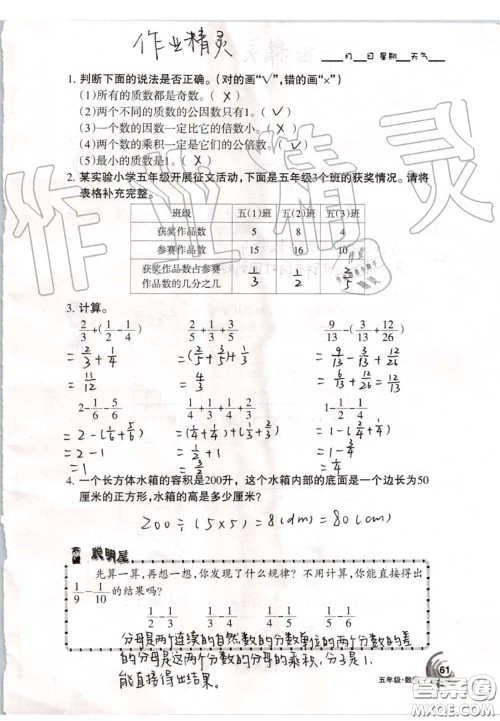 作业精灵
____月__日 星期__天气____
1. 判断下面的说法是否正确。(对的画“√”,错的画“×”)
(1)所有的质数都是奇数。( × )
(2)两个不同的质数的公因数只有1。( √ )
(3)一个数的因数一定比它的倍数小。( × )
(4)两个数的乘积一定是它们的公倍数。( √ )
(5)最小的质数是1。( × )
2. 某实验小学五年级开展征文活动,下面是五年级3个班的获奖情况。请将
表格补充完整。
班级 五(1)班 五(2)班 五(3)班
获奖作品数 5 8 4
参赛作品数 15 16 10
获奖作品数占参赛
作品数的几分之几 1/3 1/2
3. 计算。
2/3+(1/2-1/4) 2/5+1/3+3/5 9/13-3/13+12/26
=2/3+1/4 =(2/5+3/5)+1/3 =9/13-3/13+12/26
=11/12 =4/3 =6/13+12/26=12/13
2-1/6-5/6 1/4+1/3+1/4+2/3 1-1/4-1/4
=2-(1/6+5/6) =(1/4+1/4)+(1/3+2/3) =1-(1/4+1/4)
=2-1 =1/2+1 =1-1/2
=1 =1 1/2 =1/2
4. 一个长方体水箱的容积是200升,这个水箱内部的底面是一个边长为50
厘米的正方形,水箱的高是多少厘米?
200÷(5×5)=8(dm)=80(cm)
聪明屋
先算一算,再想一想,你发现了什么规律?不用计算,你能直接得出
1/9-1/10的结果吗?
1/2-1/3 1/3-1/4 1/4-1/5
分母是两个连续的自然数的分数单位的两个分数的差
的分母是这两个分数的分母的乘积,分子是1,
能直接得出结果。
61
五年级·数
作业精灵